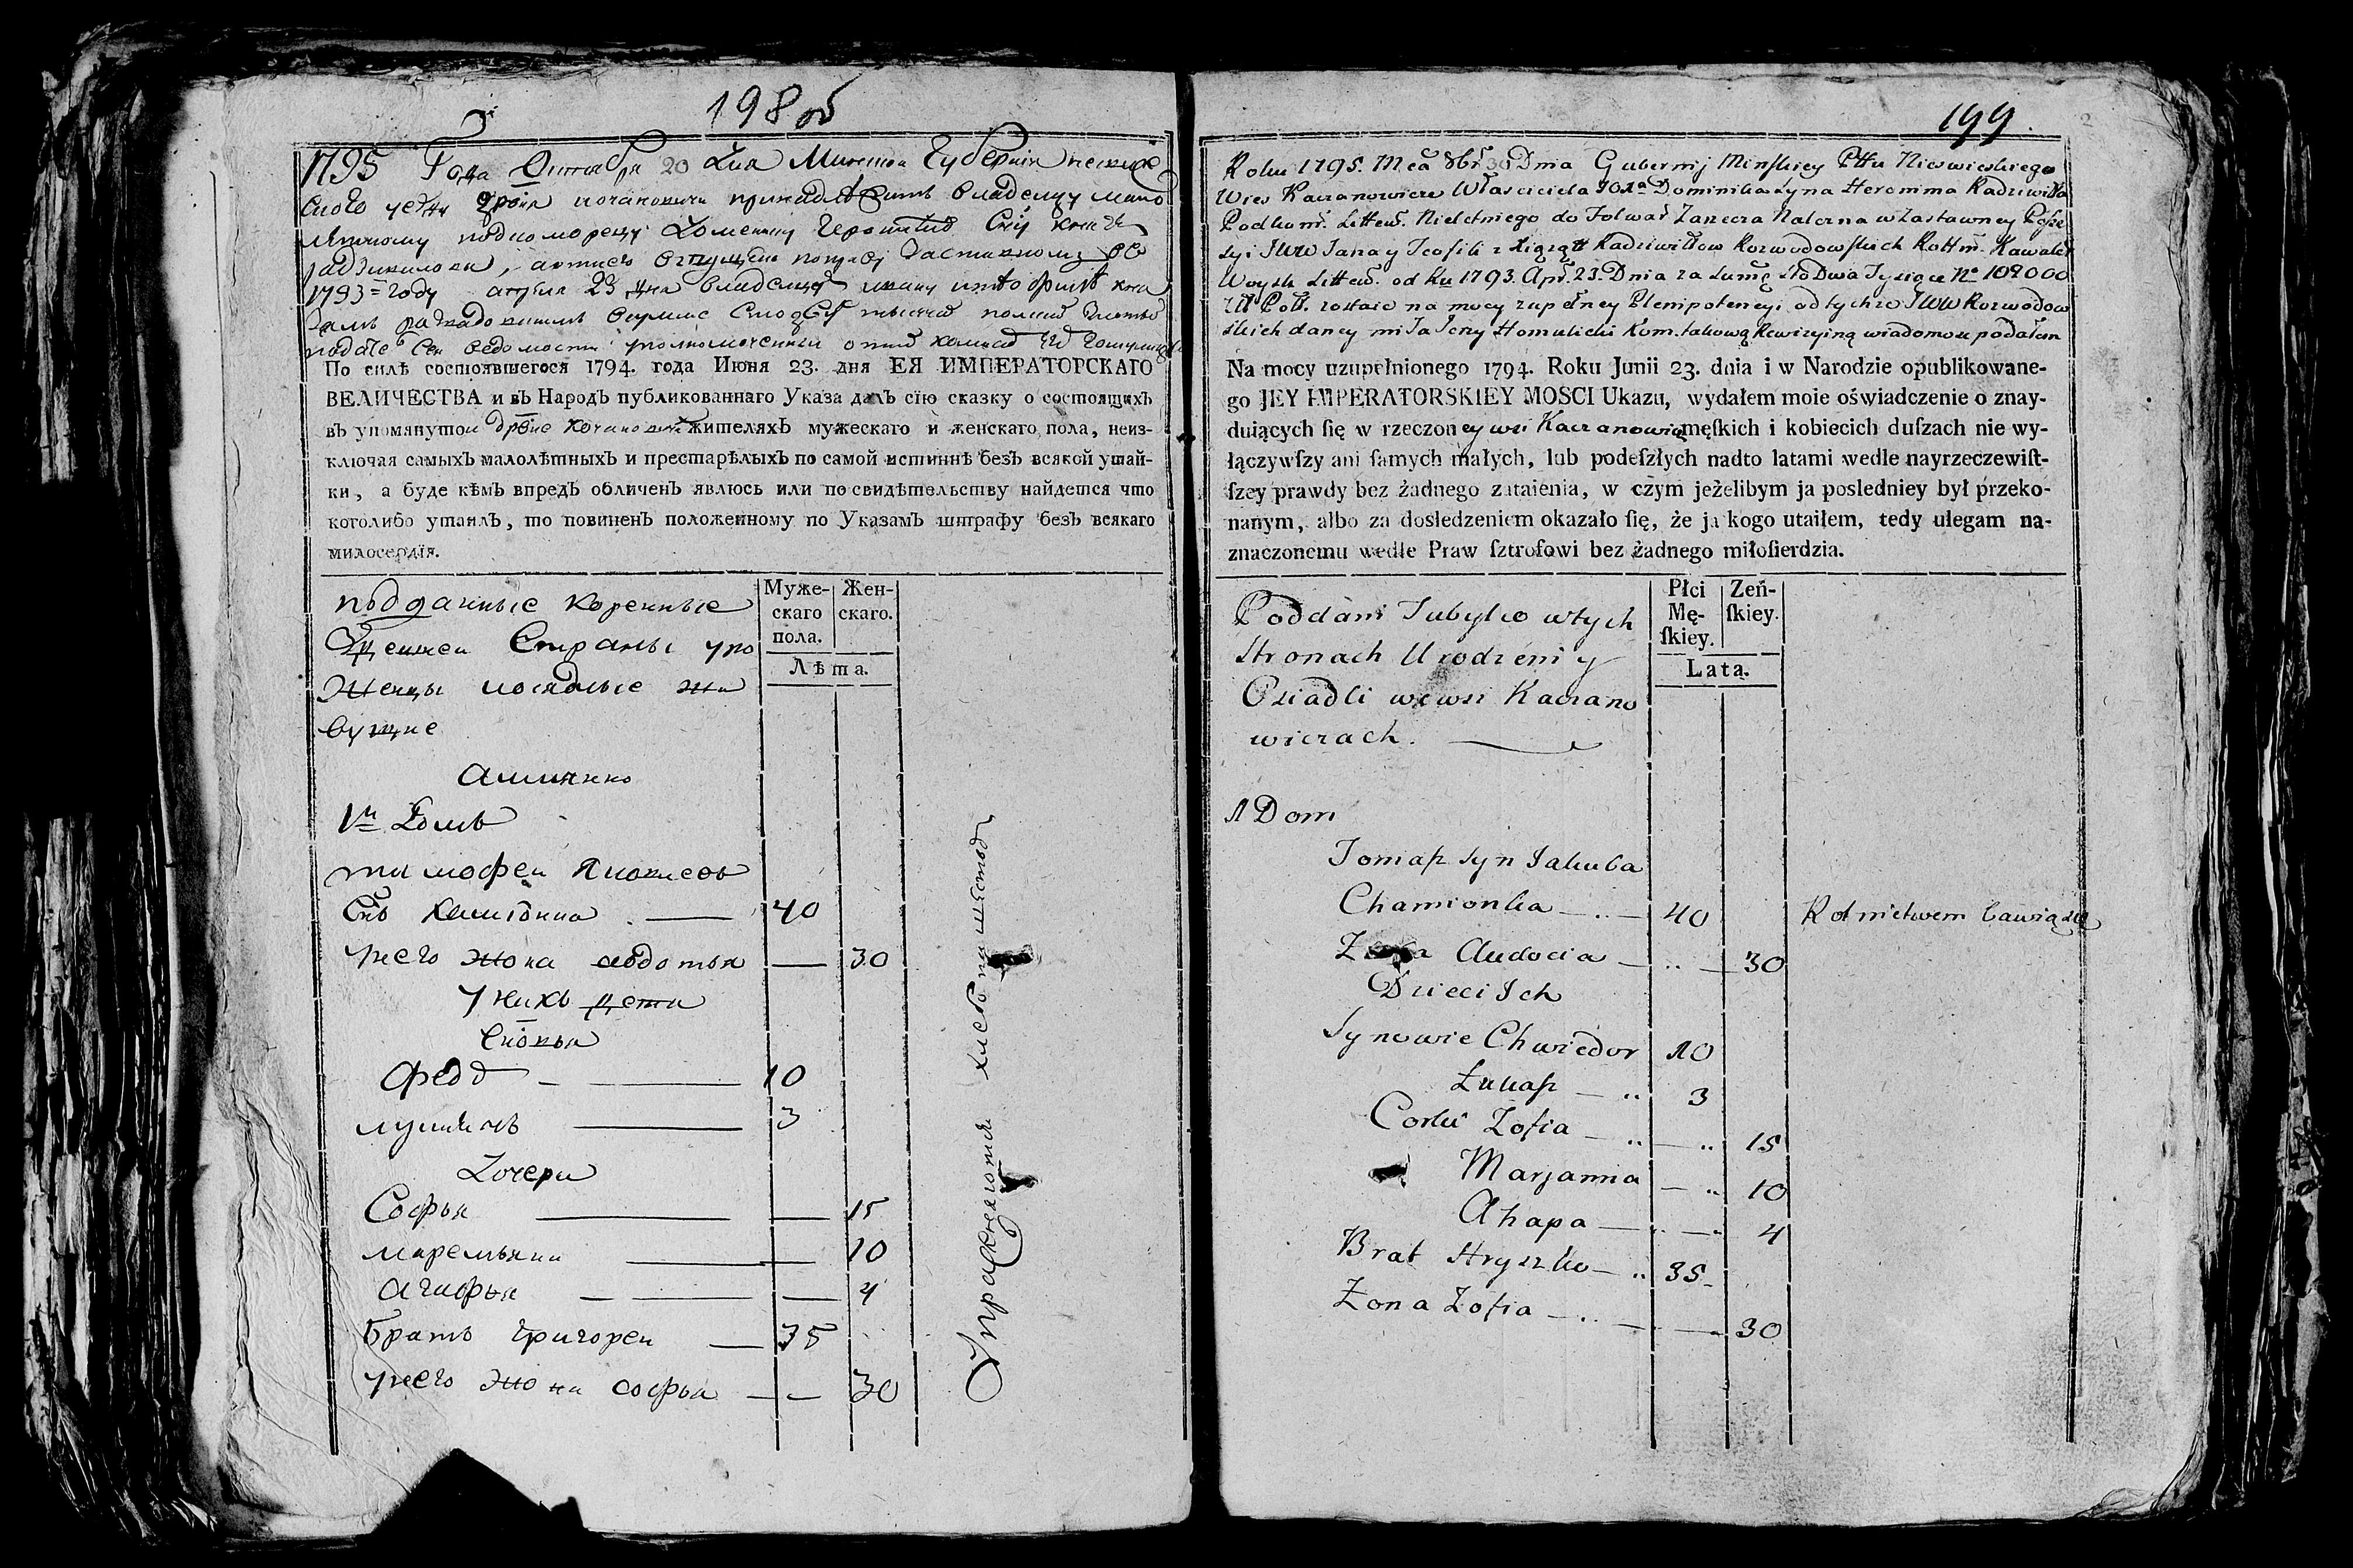 198 об
1795 Года Октября 20 Дня Минской Губернии
уезду принадлежить владелцу мало
подкоморему Доминику Сну
1793 = году апреля 23 дня владелцам
По силѣ состоявшегося 1794. года Июня 23. дня ЕЯ ИМПЕРАТОРСКАГО
ВЕЛИЧЕСТВА и въ Народъ публикованнаго Указа далъ сїю сказку о состоящихъ
въ упомянутои дрвне жителяхъ мужескаго и женскаго пола, неиз-
ключая самыхъ малолѣтныхъ и престарѣлыхъ по самой истиннѣ безъ всякой утай-
ки, а буде кѣмъ впредъ обличенъ явлюсь или по свидѣтельству найдется что
коголибо утаилъ, то повиненъ положенному по Указамъ штрафу безъ всякаго
милосердїя.
Муже- Жен-
скаго скаго.
пола.
Лѣта.
подданные коренные
Здешнеи Страны уро
женцы
вущие
аминно
1й Домъ
тимофеи
Снъ 40
унего жона авдотья — 30
унихъ дети
Сновья
Федо 10
лукянъ 3
Дочери
Софья — 15
маремьяна — 10
агафья — 4
Братъ григореи — 35
унего жона софья — 30
Упражняются хлебопашеством
199
Roku 1795. Mca 8br 30 Dnia Gubernij Minskiey Pttu Nieswieskiego
Wies Kaczanowicze Właściciela JOXa Dominika syna Heronima Radziwiłła
Podkom. Littew. Nieletniego do Folwar Zaniecza Należna w Zastawney Posse
syi JWW Jana y Teofili z Xiążąt Radziwiłłow Rozwodowskich Rottm. Kawaler
Woysk Littew. od Ru 1793. Apr. 23. Dnia za sumę sto Dwa Tysiące No 102000
Zł Pol. zostaie na mocy zupełney Plenipotencyi od tychże JWW Rozwodow
skich daney mi Ja Jerzy Homulicki Kom. takową Rewizyiną wiadomosc podałem
Na mocy uzupełnionego 1794. Roku Junii 23. dnia i w Narodzie opublikowane-
go JEY IMPERATORSKIEY MOSCI Ukazu, wydałem moie oświadczenie o znay-
duiących ſię w rzeczoney wsi Kaczanowicz męſkich i kobiecich duſzach nie wy-
łączywſzy ani ſamych małych, lub podeſzłych nadto latami wedle nayrzeczewiſt-
ſzey prawdy bez żadnego zataienia, w czym jeżelibym ja posledniey był przeko-
nanym, albo za dosledzeniem okazało ſię, że ja kogo utaiłem, tedy ulegam na-
znaczonemu wedle Praw ſztrofowi bez żadnego miłoſierdzia.
Płci Zeń-
Mę- ſkiey.
ſkiey.
Lata.
Poddani Tubylco w tych
Stronach Urodzeni y
Osiadli we wsi Kaczano
wiczach.
1 Dom
Tomaſz syn Jakuba
Chamionka — 40 Rolnictwem bawią się
Zona Audocia — 30
Dzieci Ich
Synowie Chwiedor 10
Łukaſz — 3
Corki Zofia — 15
Marjanna — 10
Ahapa — 4
Brat Hryszko — 35
Zona Zofia — 30